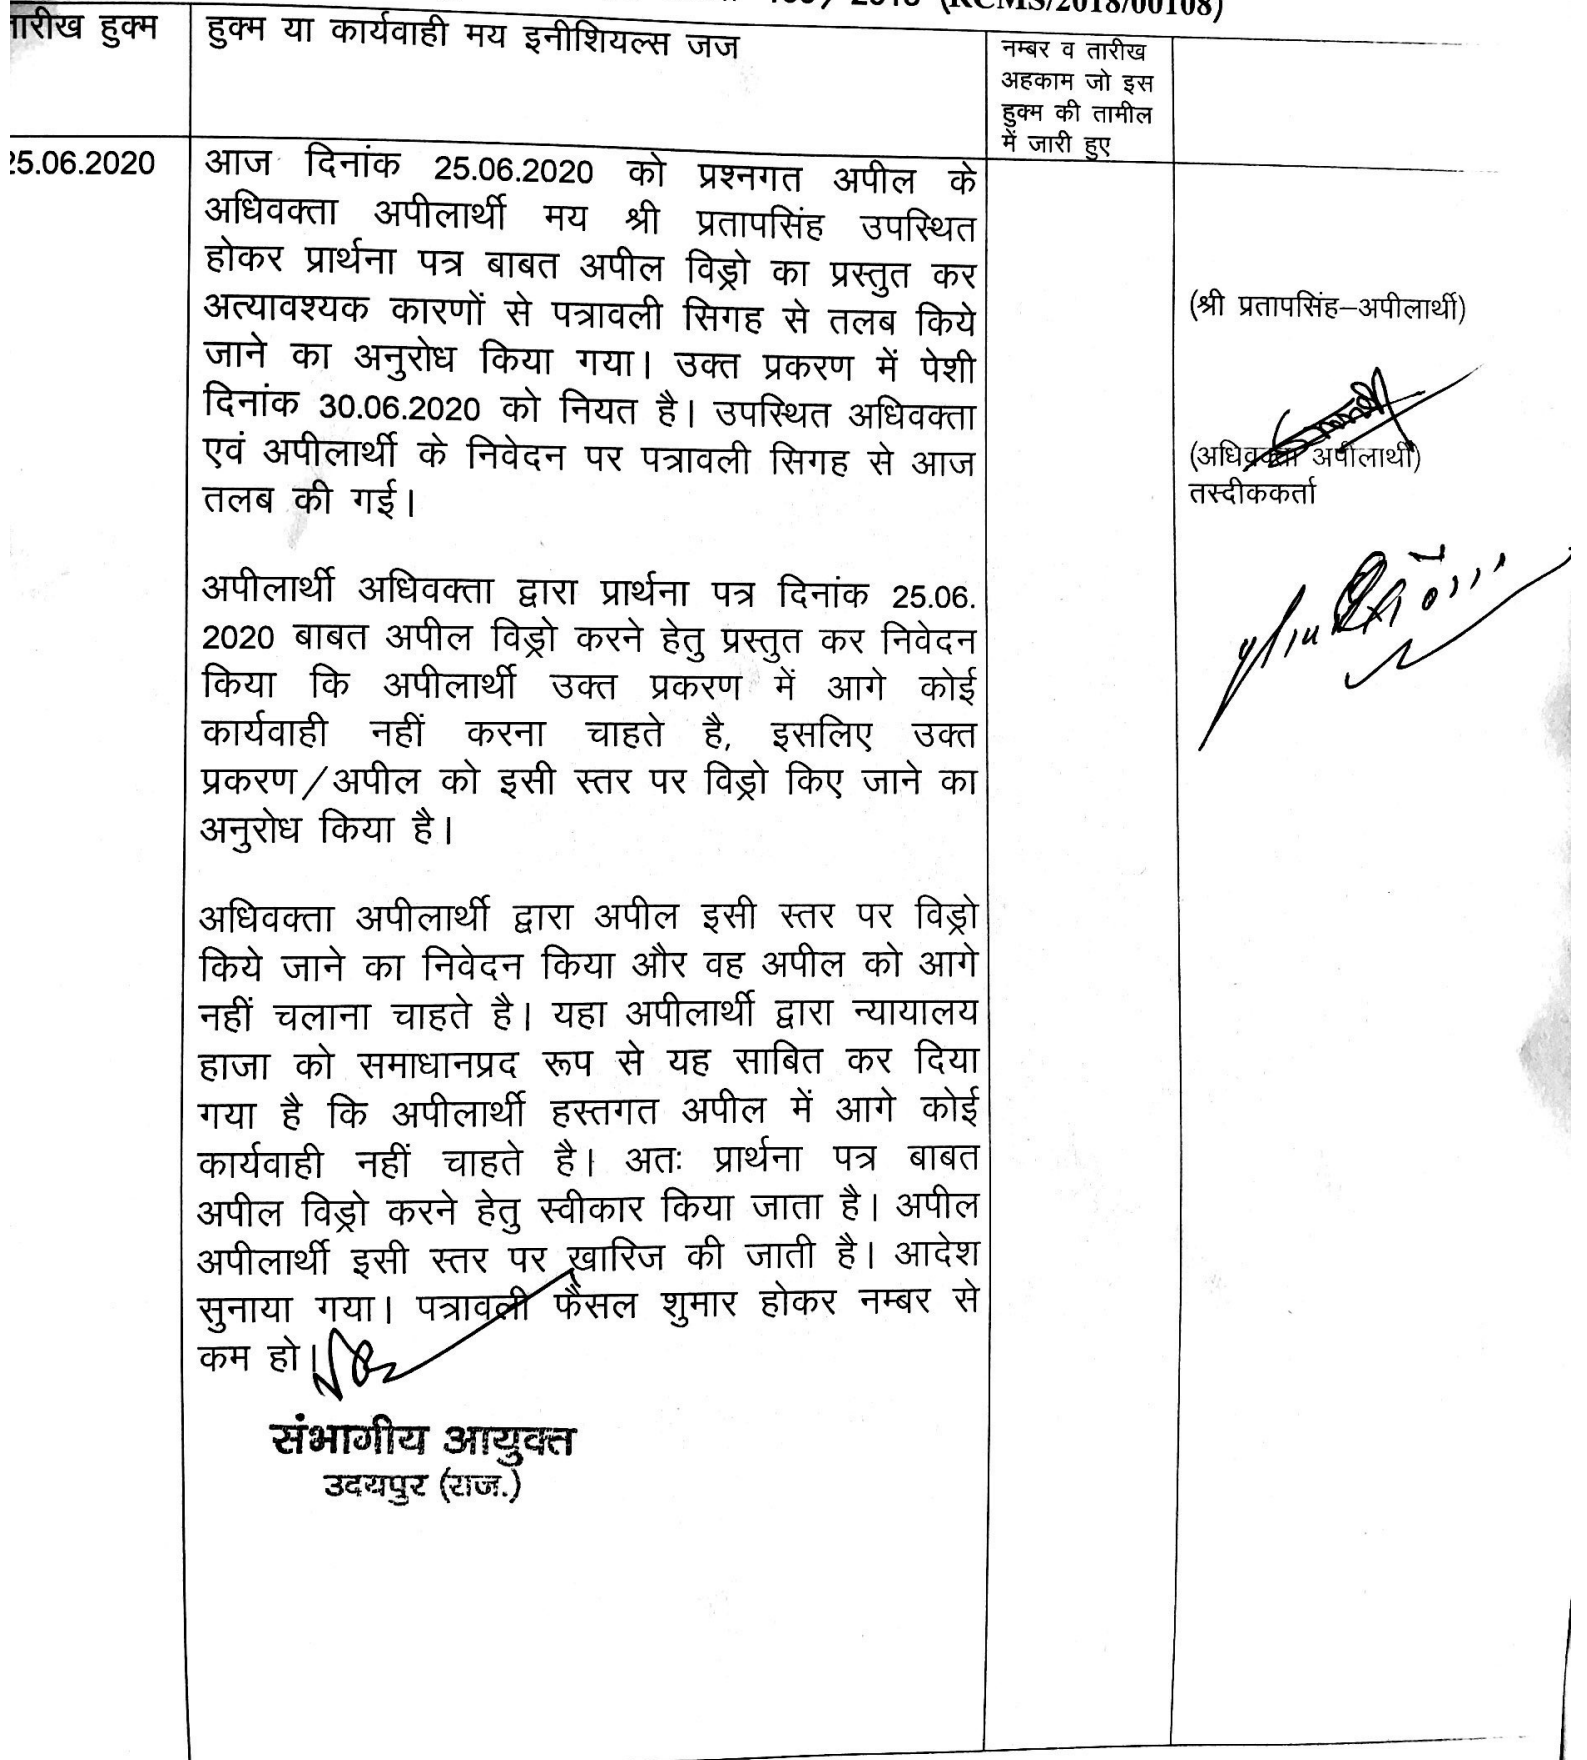 (RCMS/2018/00108)
तारीख हुक्म
हुक्म या कार्यवाही मय इनीशियल्स जज
नम्बर व तारीख
अहकाम जो इस
हुक्म की तामील
में जारी हुए
25.06.2020
आज दिनांक 25.06.2020 को प्रश्नगत अपील के
अधिवक्ता अपीलार्थी मय श्री प्रतापसिंह उपस्थित
होकर प्रार्थना पत्र बाबत अपील विड्रो का प्रस्तुत कर
अत्यावश्यक कारणों से पत्रावली सिगह से तलब किये
जाने का अनुरोध किया गया। उक्त प्रकरण में पेशी
दिनांक 30.06.2020 को नियत है। उपस्थित अधिवक्ता
एवं अपीलार्थी के निवेदन पर पत्रावली सिगह से आज
तलब की गई।
अपीलार्थी अधिवक्ता द्वारा प्रार्थना पत्र दिनांक 25.06.
2020 बाबत अपील विड्रो करने हेतु प्रस्तुत कर निवेदन
किया कि अपीलार्थी उक्त प्रकरण में आगे कोई
कार्यवाही नहीं करना चाहते है, इसलिए उक्त
प्रकरण/अपील को इसी स्तर पर विड्रो किए जाने का
अनुरोध किया है।
अधिवक्ता अपीलार्थी द्वारा अपील इसी स्तर पर विड्रो
किये जाने का निवेदन किया और वह अपील को आगे
नहीं चलाना चाहते है। यहा अपीलार्थी द्वारा न्यायालय
हाजा को समाधानप्रद रूप से यह साबित कर दिया
गया है कि अपीलार्थी हस्तगत अपील में आगे कोई
कार्यवाही नहीं चाहते है। अतः प्रार्थना पत्र बाबत
अपील विड्रो करने हेतु स्वीकार किया जाता है। अपील
अपीलार्थी इसी स्तर पर खारिज की जाती है। आदेश
सुनाया गया। पत्रावली फैसल शुमार होकर नम्बर से
कम हो।
संभागीय आयुक्त
उदयपुर (राज.)
(श्री प्रतापसिंह–अपीलार्थी)
(अधिवक्ता अपीलार्थी)
तस्दीककर्ता